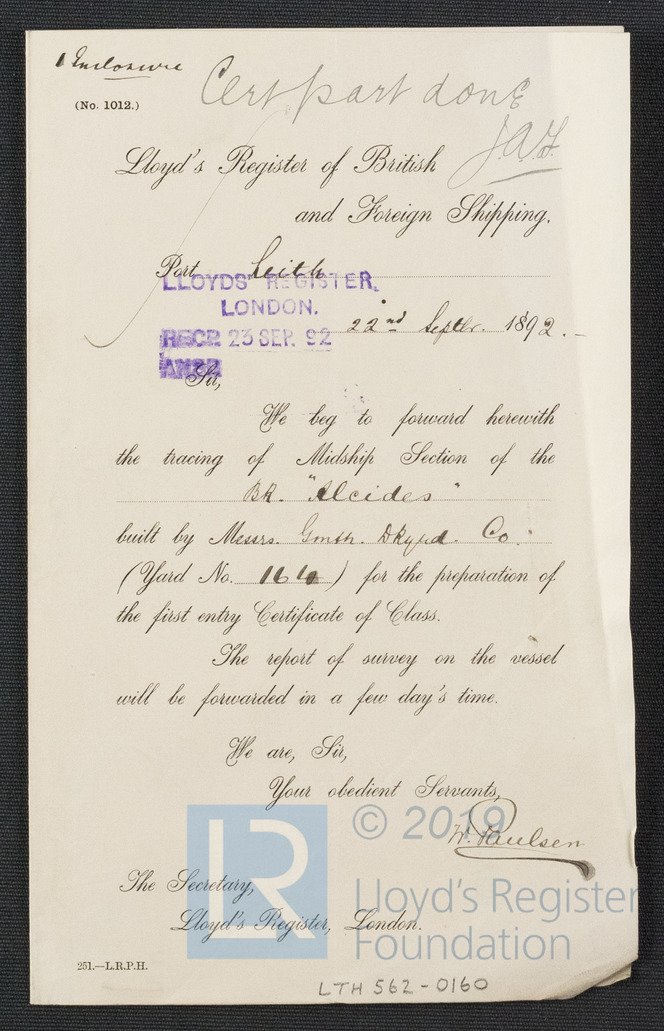 1 Enclosure
Cert part done
(No. 1012.)
J.A.F.
Lloyd's Register of British
and Foreign Shipping.
Port Leith
LLOYDS' REGISTER.
LONDON.
22nd Septbr. 1892.
RECD. 23 SEP. 92
ANSD.
Sir,
We beg to forward herewith
the tracing of Midship Section of the
Bk. "Alcides"
built by Messrs. Gmth. Dkyd. Co.
(Yard No. 164) for the preparation of
the first entry Certificate of Class.
The report of survey on the vessel
will be forwarded in a few day's time.
We are, Sir,
Your obedient Servants,
W. Paulsen
© 2019
LR
Lloyd's Register
Foundation
The Secretary,
Lloyd's Register, London.
251.—L.R.P.H.
LTH 562-0160